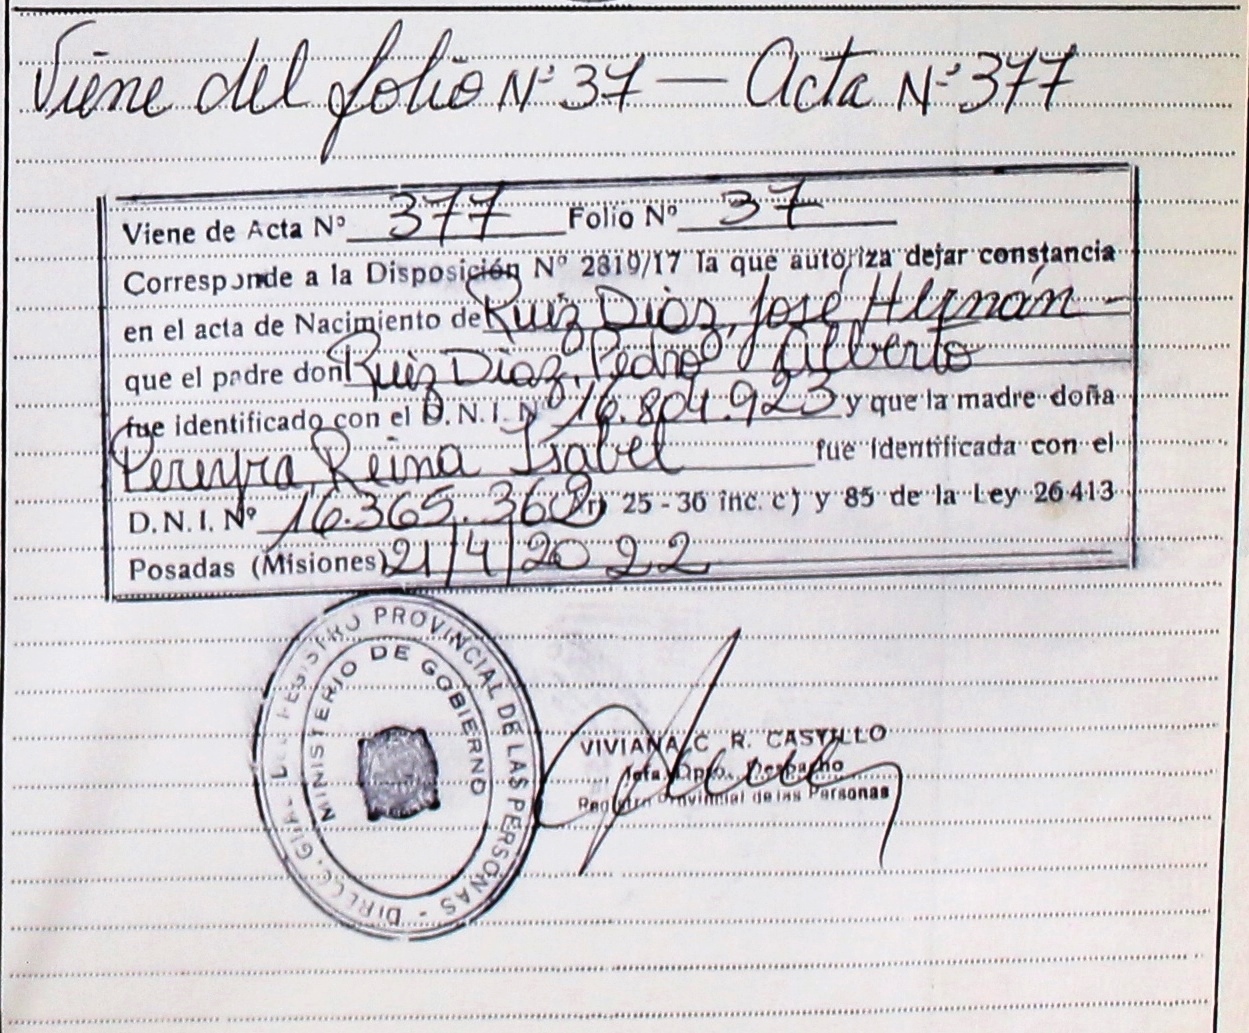 Viene del folio Nº 37 — Acta Nº 377
Viene de Acta Nº 377 Folio Nº 37
Corresponde a la Disposición Nº 2819/17 la que autoriza dejar constancia
en el acta de Nacimiento de Ruiz Diaz, José Hernán -
que el padre don Ruiz Diaz, Pedro Alberto
fue identificado con el D.N.I. Nº 16.804.923 y que la madre doña
Pereyra, Reina Isabel fue identificada con el
D.N.I. Nº 16.365.362 25 - 36 inc. c) y 85 de la Ley 26413
Posadas (Misiones) 21/4/2022
DIRECC. GRAL. DEL REGISTRO PROVINCIAL DE LAS PERSONAS -
MINISTERIO DE GOBIERNO
VIVIANA C. R. CASTILLO
Jefa Dpto. Despacho
Registro Provincial de las Personas